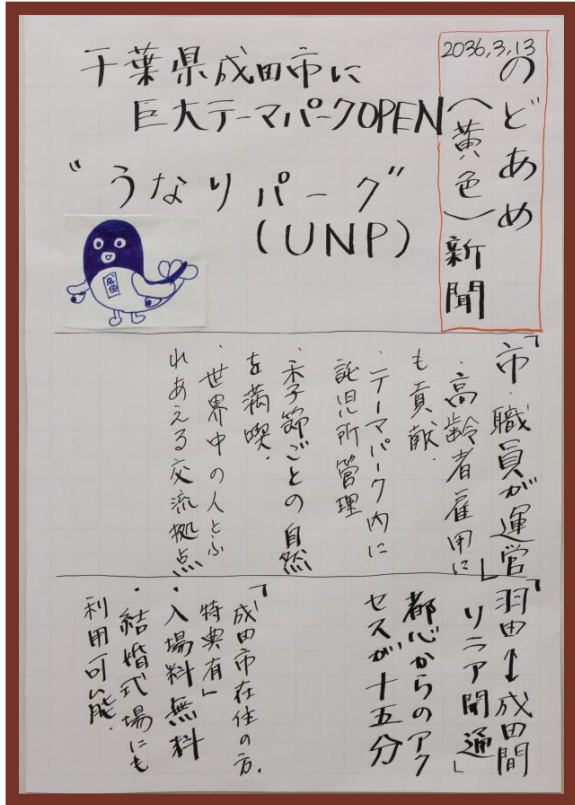 2036.3.13
のどあめ
(黄色)新聞
千葉県成田市に
巨大テーマパークOPEN
"うなりパーク"
(UNP)
成田
「市・職員が運営」
・高齢者雇用に
も貢献.
・テーマパーク内に
託児所管理
・季節ごとの自然
を満喫.
・世界中の人とふ
れあえる交流拠点
「羽田↔成田間
リニア開通」
都心からのアク
セスが十五分
「成田市在住の方.
特典有」
・入場料無料
・結婚式場にも
利用可能.